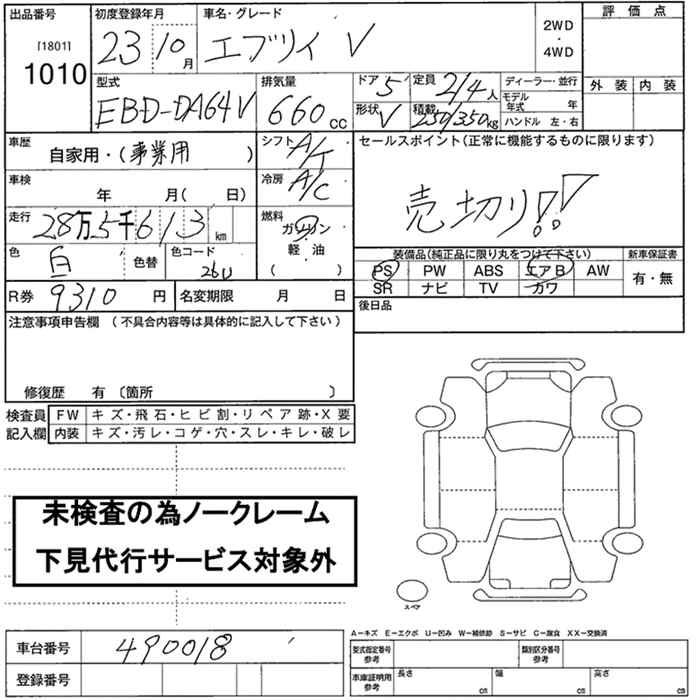 出品番号 [1801] 1010
初度登録年月 23 10月
車名・グレード エブリイ V
2WD・4WD
評 価 点
外 装 内 装
型式 EBD-DA64V
排気量 660 cc
ドア 5
定員 2/4 人
形状 V
積載 250/350 kg
ディーラー・並行
モデル年式 年
ハンドル 左・右
車歴 自家用・(事業用 )
シフト A/T
セールスポイント(正常に機能するものに限ります)
売切り!!
車検 年 月( 日)
冷房 A/C
走行 28万5千613 km
燃料 ガソリン・軽・油 ( )
色 白 色替
色コード 26U
装備品(純正品に限り丸をつけて下さい)
新車保証書
PS PW ABS エアB AW
有・無
SR ナビ TV カワ
R券 9310 円
名変期限 月 日
後日品
注意事項申告欄 (不具合内容等は具体的に記入して下さい)
修復歴 有 〔箇所 〕
検査員記入欄
FW キズ・飛石・ヒビ割・リペア跡・X要
内装 キズ・汚レ・コゲ・穴・スレ・キレ・破レ
未検査の為ノークレーム
下見代行サービス対象外
スペア
A−キズ E−エクボ U−凹み W−補修跡 S−サビ C−腐食 XX−交換済
車台番号 490018
登録番号
型式指定番号 参考
類別区分番号 参考
車庫証明用 参考
長さ cm
幅 cm
高さ cm